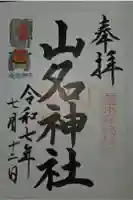 奉拝
山名神社
令和七年
七月十二日